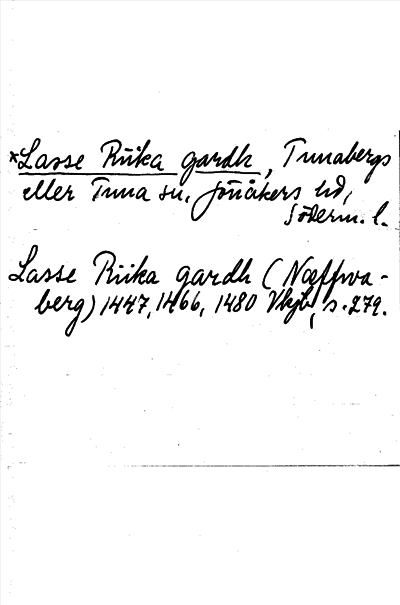 *Lasse Rüka gardh, Tunabergs
eller Tuna sn, Jönåkers hd,
Söderm. l.
Lasse Rüka gardh (Næffwa-
berg) 1447, 1466, 1480 Vkjb, s. 279.